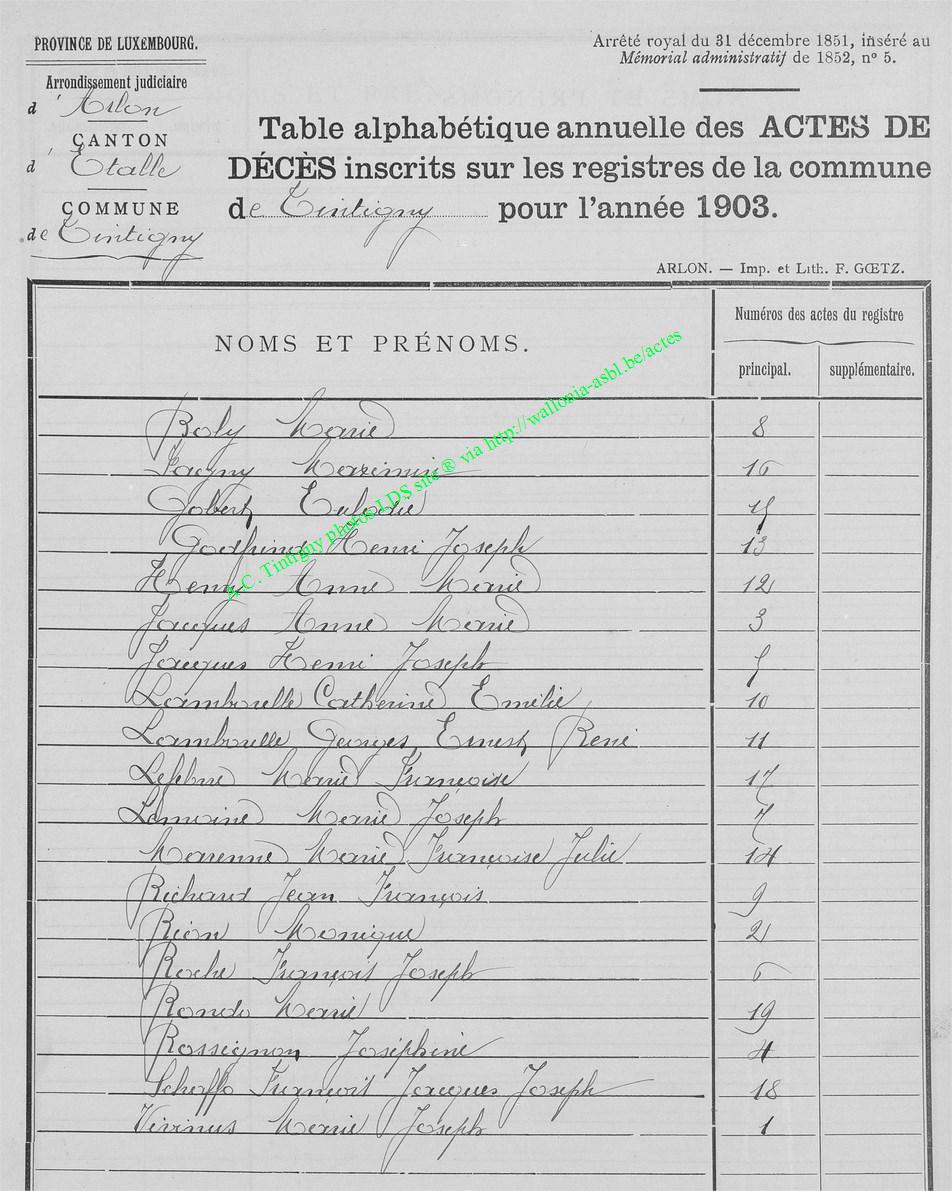 PROVINCE DE LUXEMBOURG.
Arrondissement judiciaire
d'Arlon
CANTON
d'Etalle
COMMUNE
de Tintigny
Arrêté royal du 31 décembre 1851, inséré au
Mémorial administratif de 1852, nº 5.
Table alphabétique annuelle des ACTES DE
DÉCÈS inscrits sur les registres de la commune
de Tintigny pour l'année 1903.
ARLON. — Imp. et Lith. F. GŒTZ.
NOMS ET PRÉNOMS.
Numéros des actes du registre
principal.
supplémentaire.
A.C. Tintigny photos LDS site ® via http://wallonia-asbl.be/actes
Boly Marie 8
16
Gobert Eulalie 15
Godfrind Henri Joseph 13
Henry Anne Marie 12
Jacques Anne Marie 3
Jacques Henri Joseph 5
Lambinelle Catherine Emélie 10
Lambinelle Georges Ernest René 11
Lefebvre Marie Françoise 17
Lemoine Marie Joseph 7
Marenne Marie Françoise Julie 14
Richard Jean François 9
Rion Monique 2
Roche François Joseph 6
Rondo Marie 19
Rossignon Joséphine 4
François Jacques Joseph 18
Virinus Marie Joseph 1